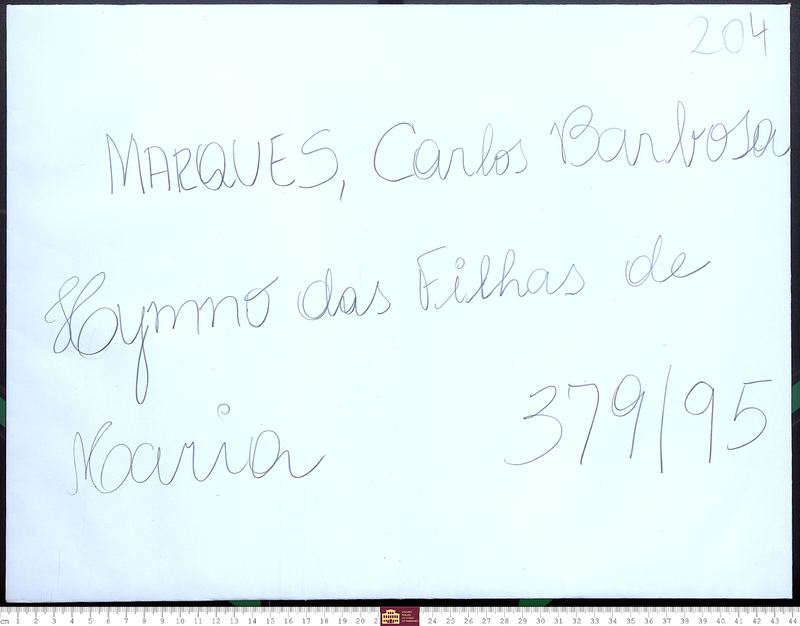 204
MARQUES, Carlos Barbosa
Hymno das Filhas de
Maria 379/95
cm 1 2 3 4 5 6 7 8 9 10 11 12 13 14 15 16 17 18 19 20 2 24 25 26 27 28 29 30 31 32 33 34 35 36 37 38 39 40 41 42 43 44